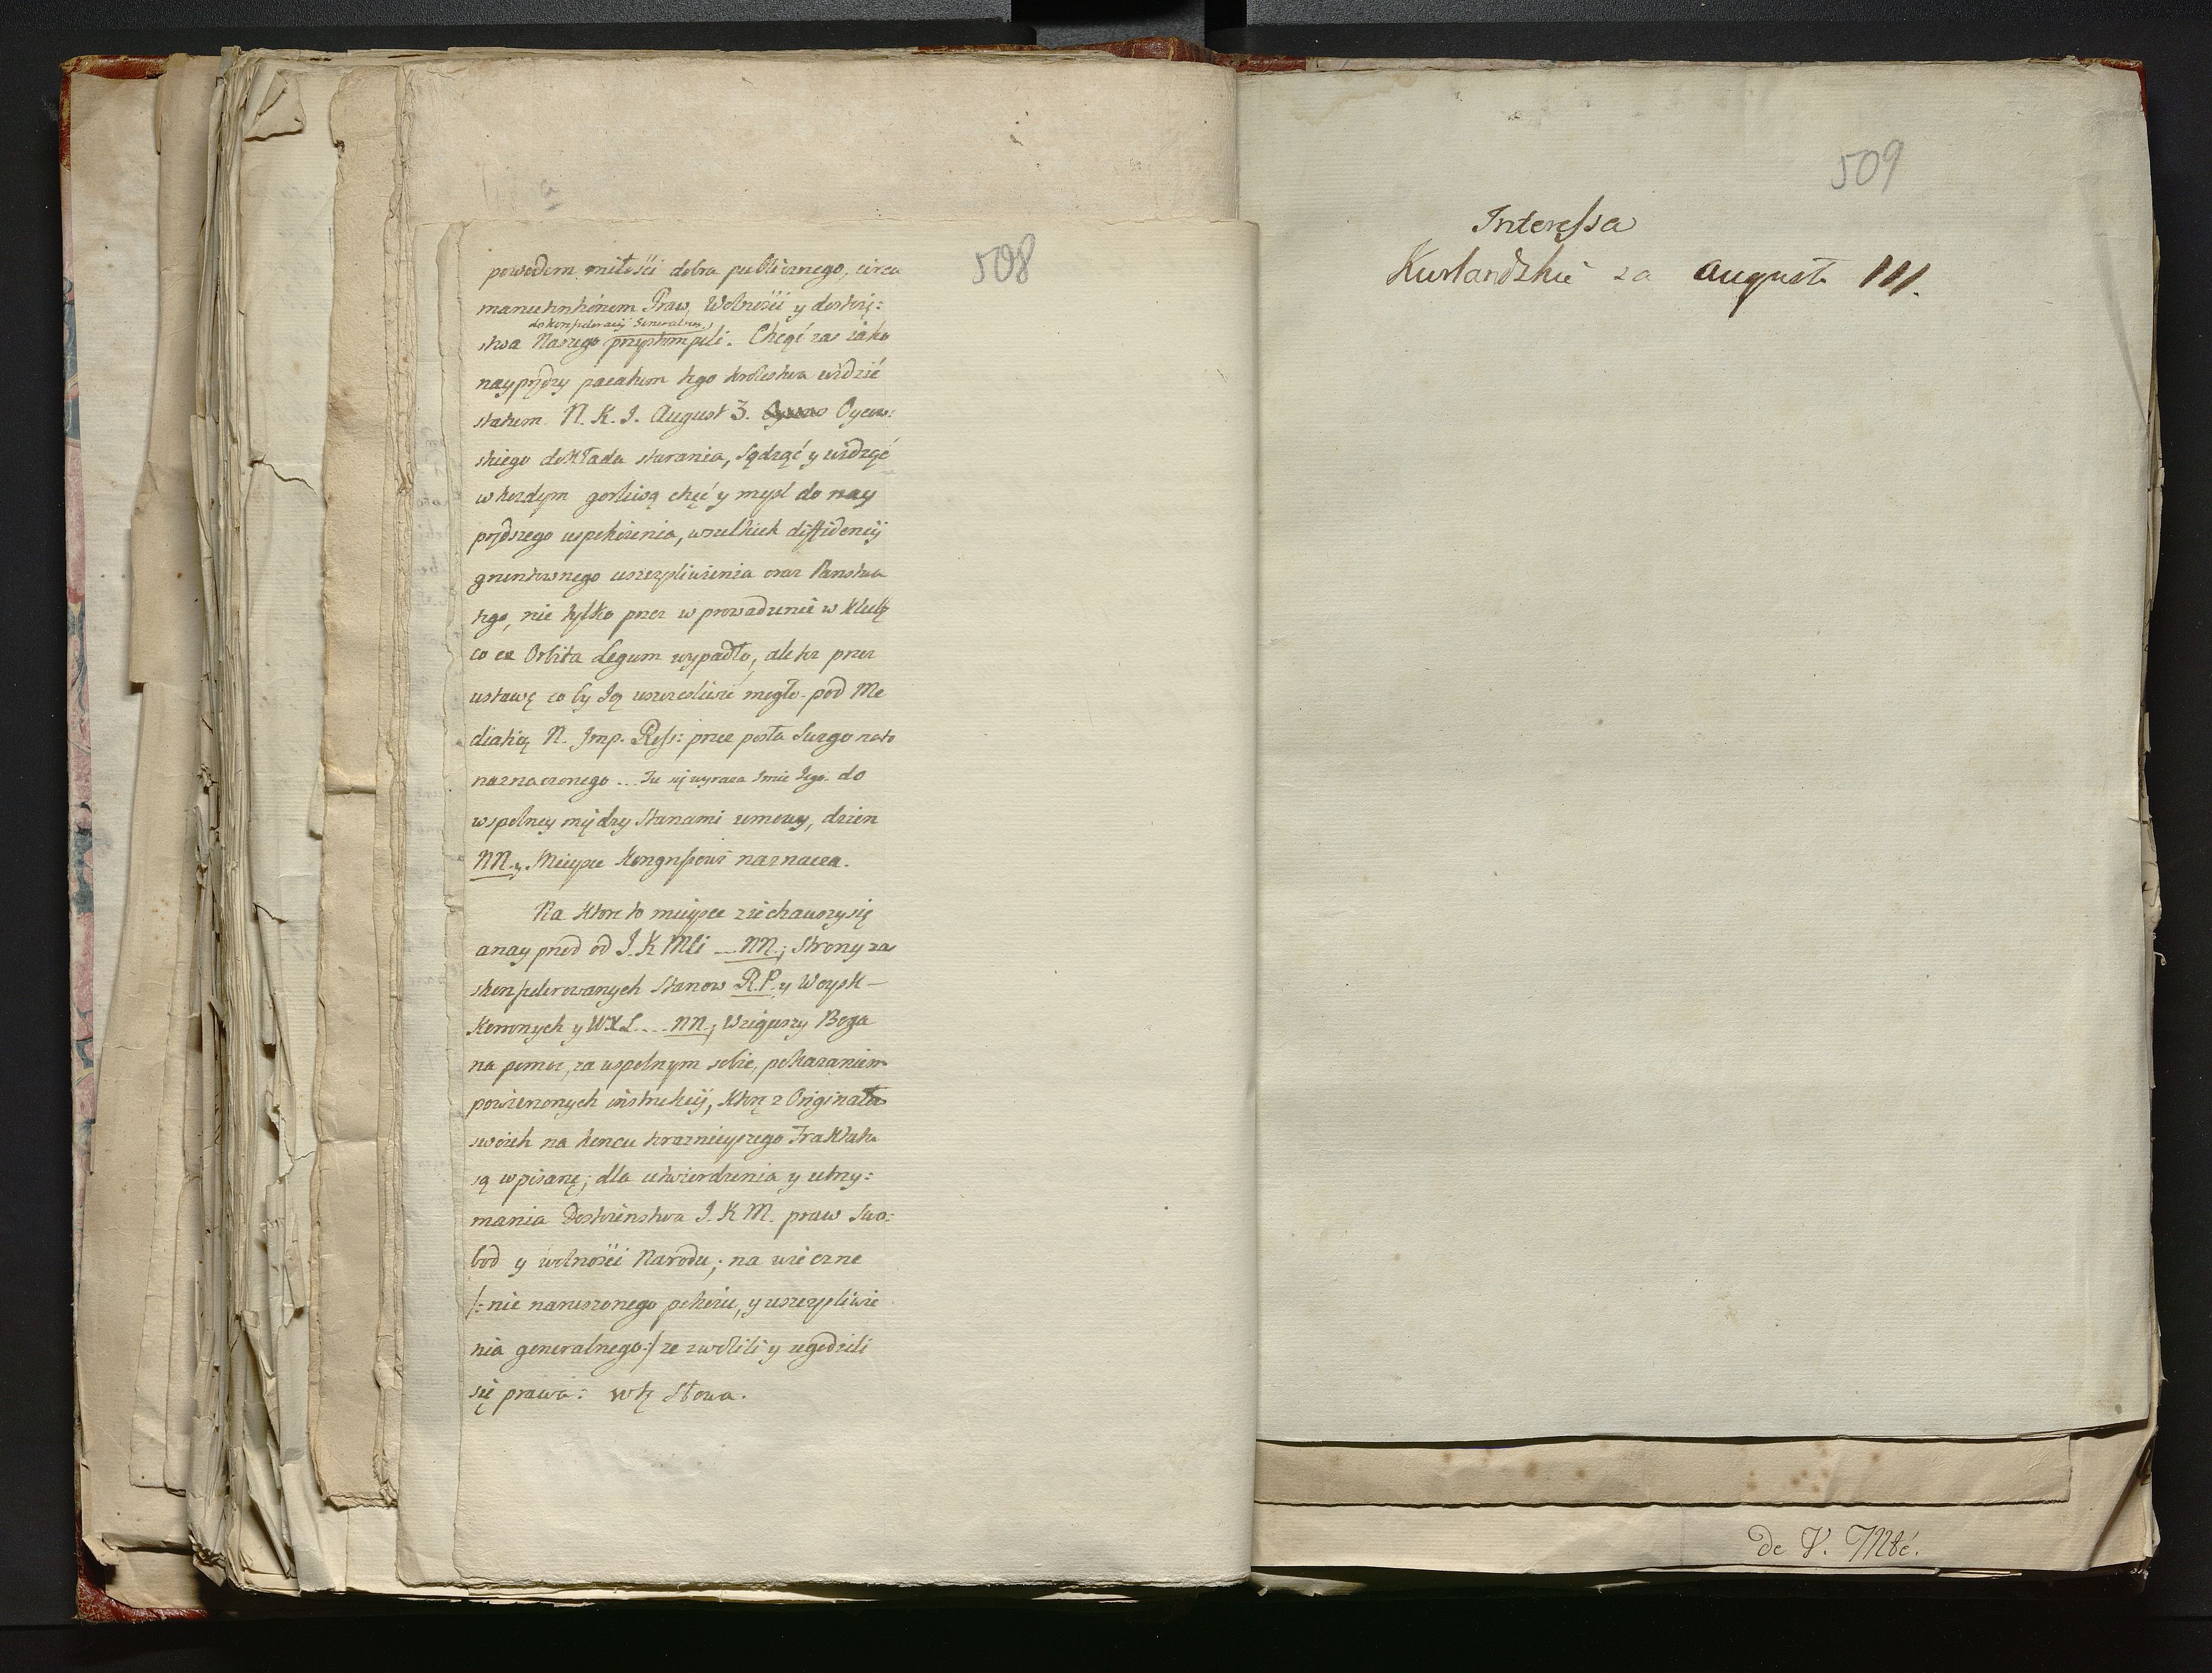 508
powodem miłości dobra publicznego, circa
manutentionem Praw, Wolności y dostoię:
do konfederacij Generalney
stwa Naszego przystompili. Chcąć zas iako
nayprędzy pacatum tego krolestwa widzić
statum N. K. J. August 3. Oycow:
skiego dokłada starania, Sądząć y widząć
w kozdym gorliwą chęć y mysl do nay
prędszego uspokoienia, wszelkich diffidencij
gruntownego uszczęsliwienia oraz Panstwa
tego, nie tylko przez wprowadzenie w Klubę
co ex Orbita Legum wypadło, ale tez przez
ustawę co by Ją uszczesliwić mogło. pod Me
diatią N. Imp. Ross: przez posła Swego na to
naznaczonego... Tu się wyraza Imie Jego. do
wspolney między Stanami umowy, dzien
NN. y Mieysce Kongressowi naznacza.
Na ktore to mieysce ziechawszy się
a naypred od J. K Mći ... NN; Strony zas
skonfederowanych Stanow R.P. y Woysk
Koronnych y WXL.... NN; Wziąwszy Boga
na pomoc, za wspolnym sobie, pokazaniem
powierzonych instrukcij, ktorę z Originału
swoich na koncu teraznieyszego Traktatu
są wpisanę; dla utwierdzenia y utrzy:
mania Dostoienstwa J. K M. praw Swo:
bod y wolności Narodu; na wieczne
/: nie naruszonego pokoiu, y uszczęsliwie
nia generalnego :/ ze zwolili y zgodzili
się prawa: w tę Słowa.
509
Interessa
Kurlandzkie za Augusta III.
de V. Mté.